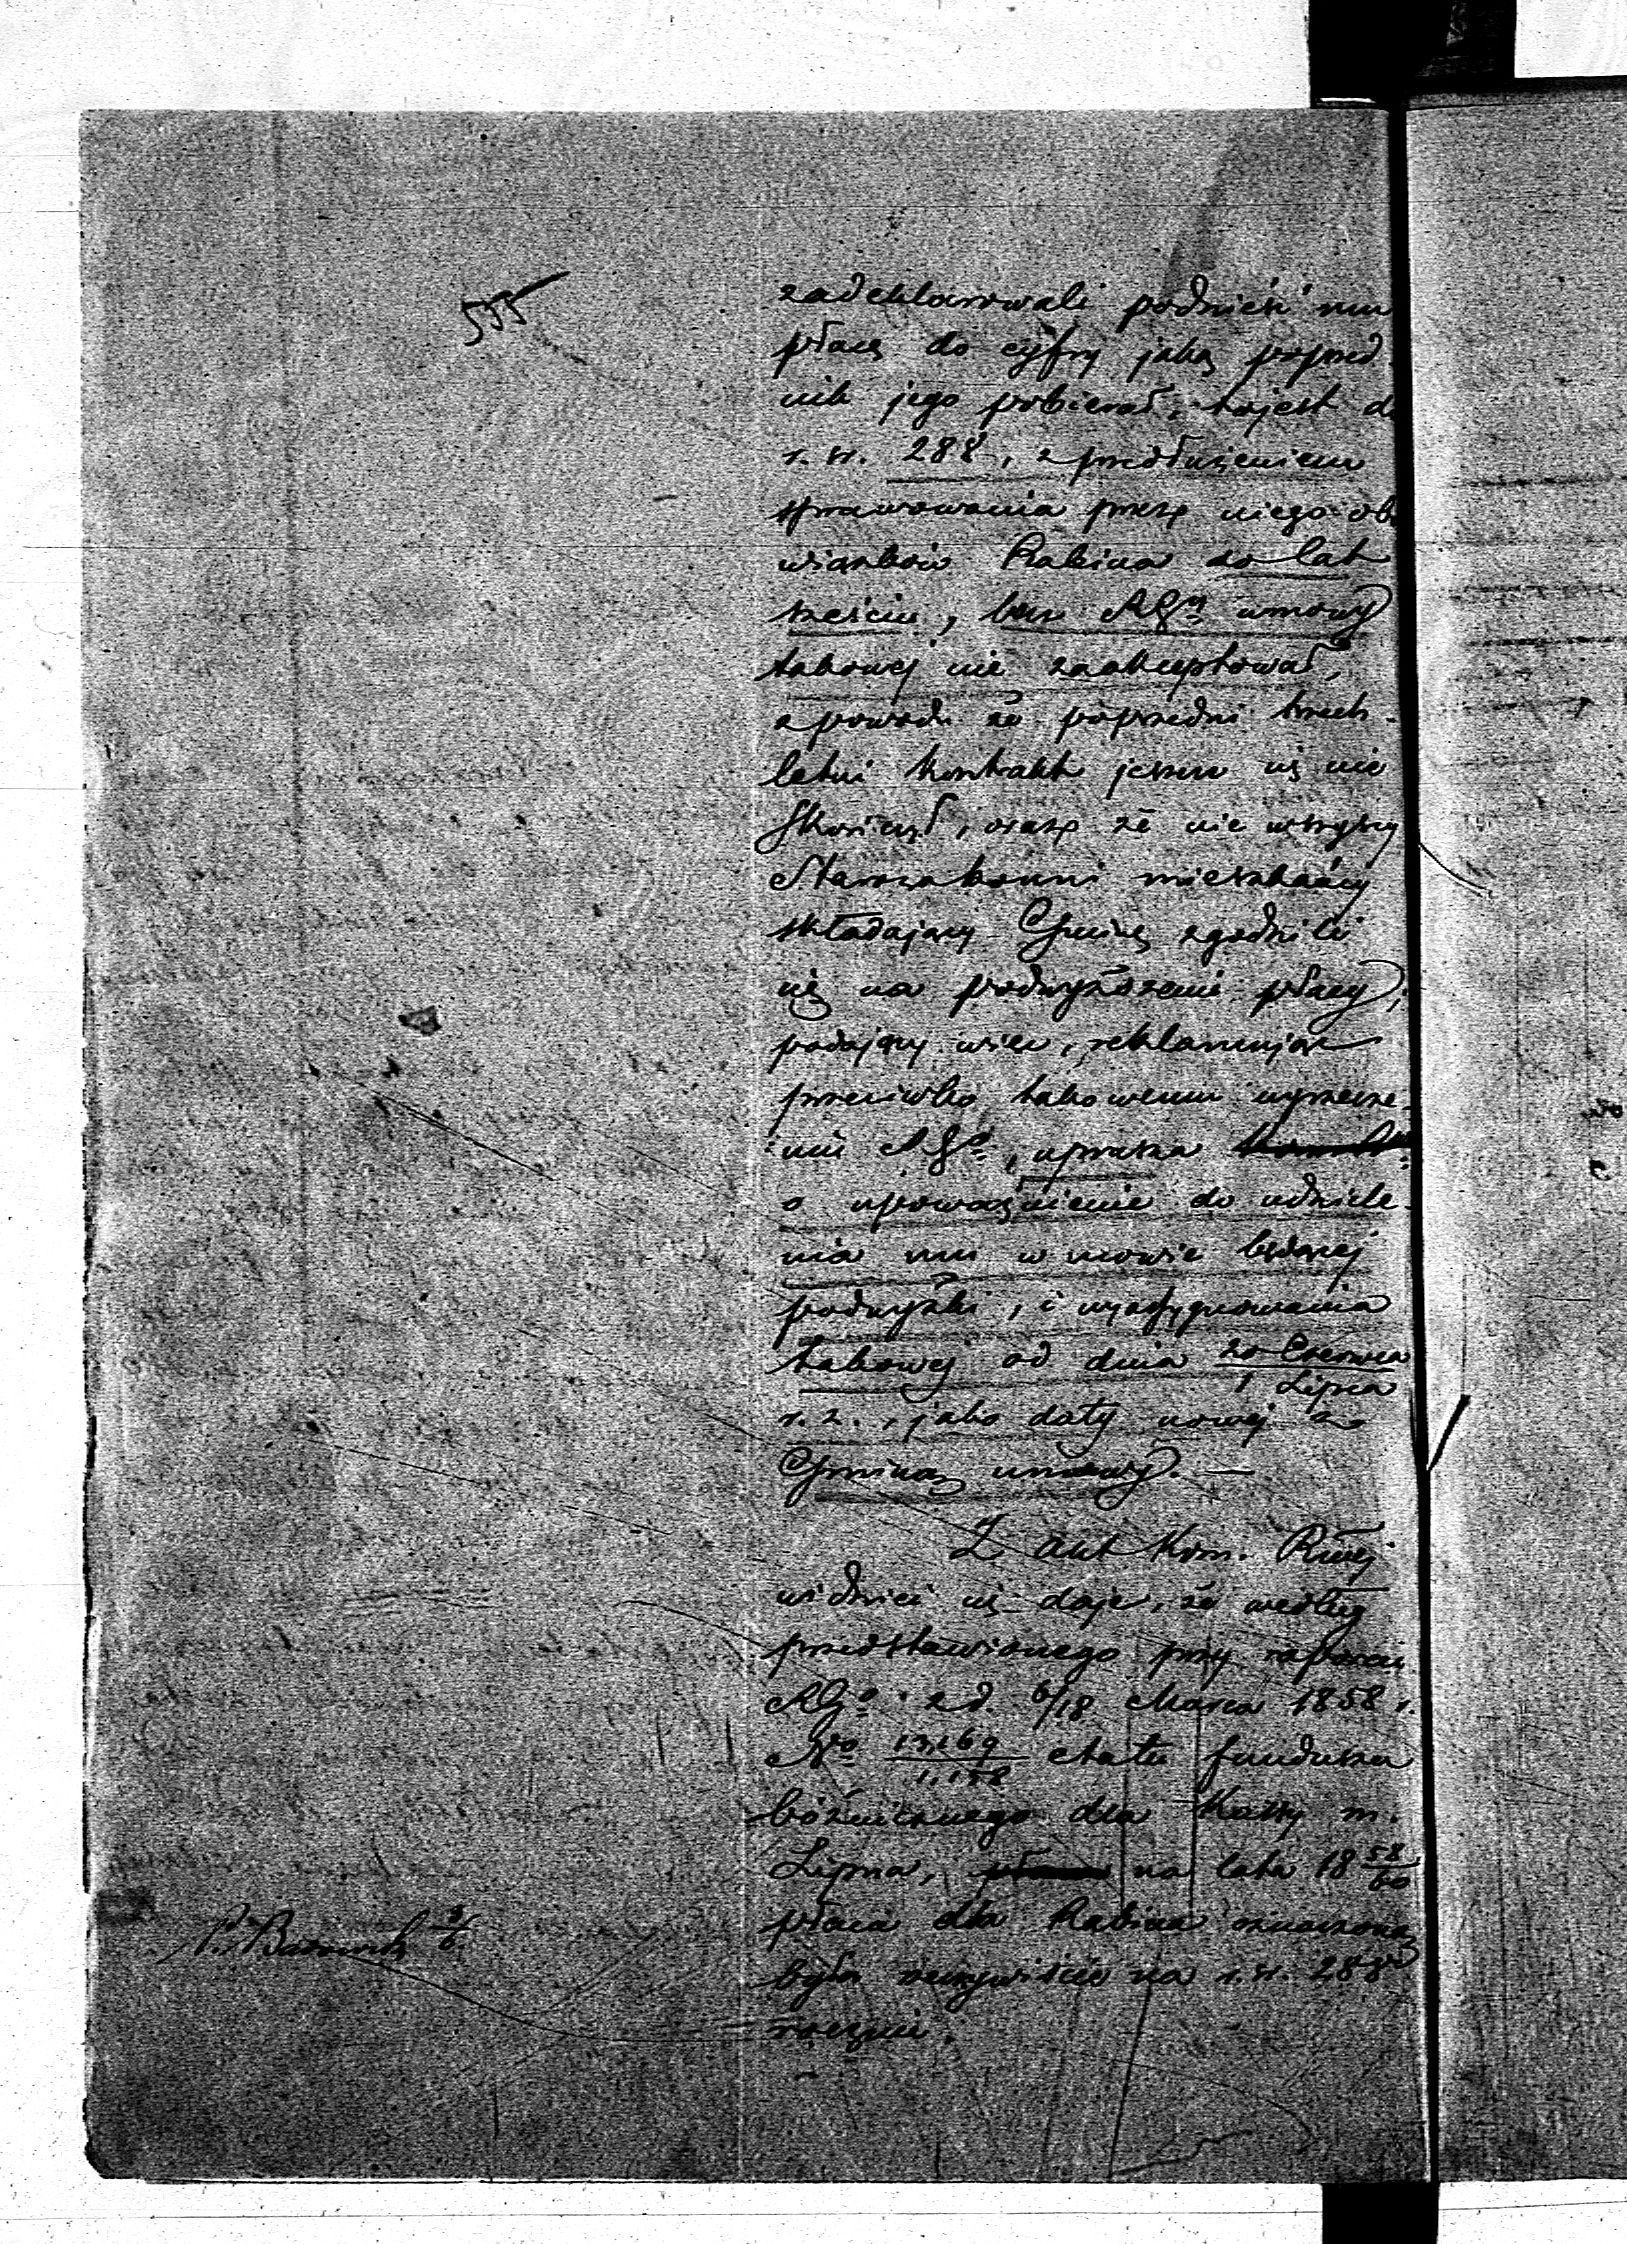 535
zadeklarowali podnieść mu
płacę do cyfry jaką poprzed
nik jego pobierał, tojest d
r. sr. 288, z przedłużeniem
sprawowania przez niego ob
wiązków Rabina do lat
sześciu, lecz RGn umowy
takowej nie zaakceptował,
z powodu że poprzedni trzech-
letni kontrakt jeszcze się nie
skończył, oraz że nie wszyscy
Starozakonni mieszkańcy
składający Gminę zgodzili
się na podwyższenie płacy,
podający więc, reklamując
przeciwko takowemu wyrzecze-
niu RGo, uprasza
o upoważnienie do udziele-
nia mu w mowie będącej
podwyżki, i wyasygnowania
takowej od dnia 20 Czerwca
1 Lipca
r. z., jako daty nowej z
Gminą umowy. —
Z akt Kom. Rwej
widzieć się daje, że według
przedstawionego przy raporcie
RGo z d. 6/18 Marca 1858 r.
No 13,169 etatu funduszu
bóżnicznego dla Kassy m.
Lipna, na lata 18 58/60
płaca dla Rabina oznaczoną
była rzeczywiście na r. sr. 288
rocznie.